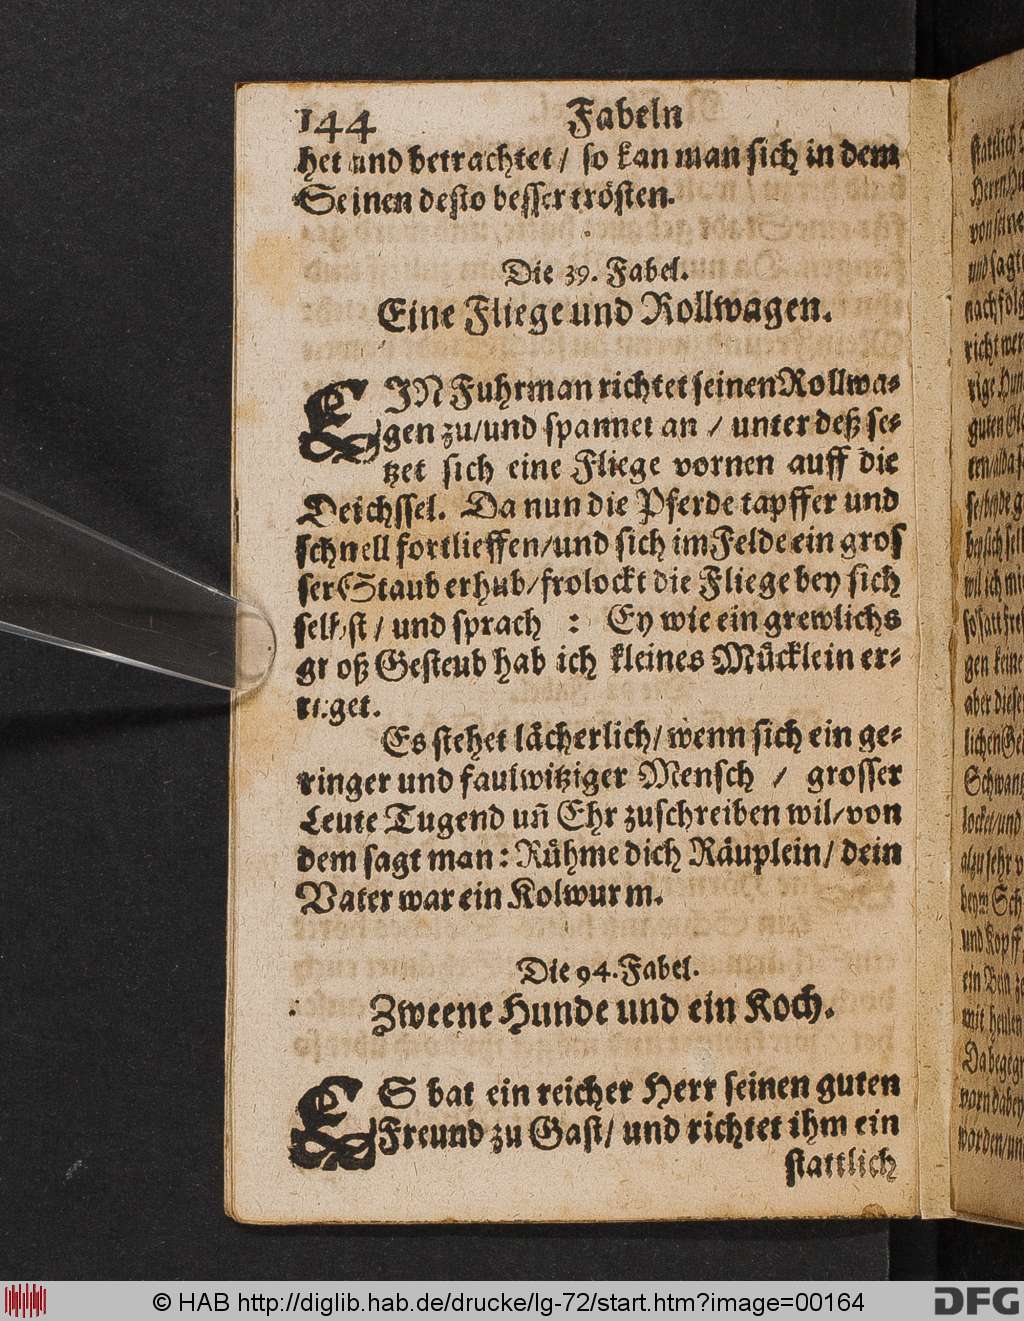 144 Fabeln
het und betrachtet / so kan man sich in dem
Seinen desto besser trösten.
Die 39. Fabel.
Eine Fliege und Rollwagen.
EIN Fuhrman richtet seinen Rollwa-
gen zu / und spannet an / unter deß se-
tzet sich eine Fliege vornen auff die
Deichssel. Da nun die Pferde tapffer und
schnell fortlieffen / und sich im Felde ein gros
ser Staub erhub / frolockt die Fliege bey sich
selbst / und sprach : Ey wie ein grewlichs
groß Gesteub hab ich kleines Mücklein er-
reget.
Es stehet lächerlich / wenn sich ein ge-
ringer und faulwitziger Mensch / grosser
Leute Tugend uñ Ehr zuschreiben wil / von
dem sagt man : Rühme dich Räuplein / dein
Vater war ein Kolwurm.
Die 94. Fabel.
Zweene Hunde und ein Koch.
ES bat ein reicher Herr seinen guten
Freund zu Gast / und richtet ihm ein
stattlich
© HAB http://diglib.hab.de/drucke/lg-72/start.htm?image=00164
DFG